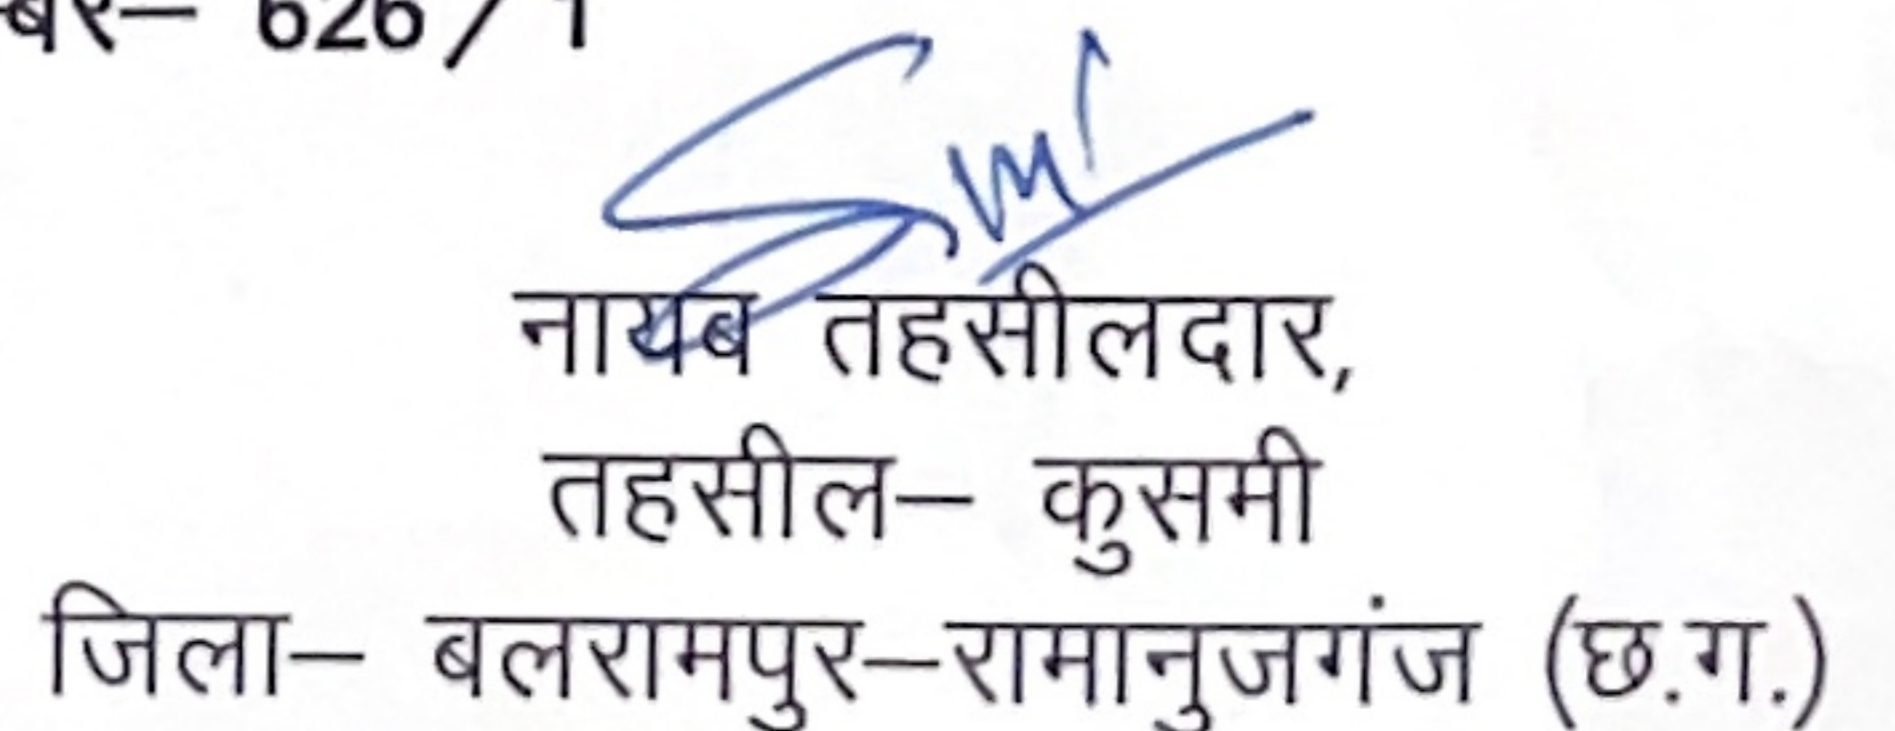 बर– 626/1
नायब तहसीलदार,
तहसील– कुसमी
जिला– बलरामपुर–रामानुजगंज (छ.ग.)